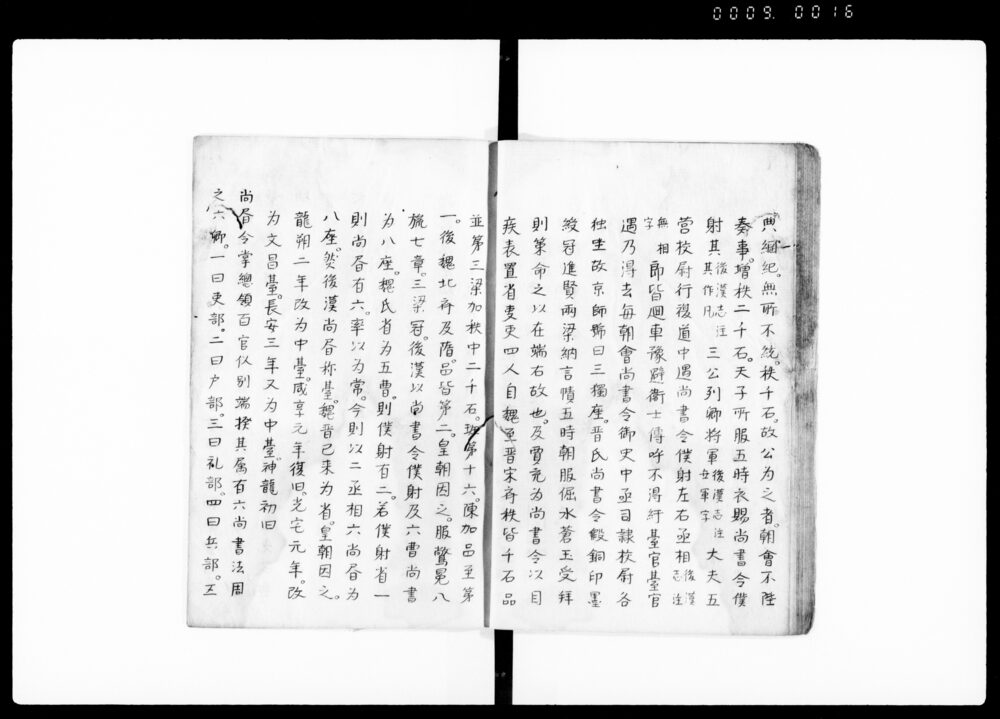 0009. 0016
典綱紀。無所不統。秩千石。故公為之者。朝會不陛
奏事。增秩二千石。天子所服五時衣賜尚書令僕
射其後漢志注其作凡三公列卿將軍後漢志注 軍字大夫五
營校尉行復道中遇尚書令僕射左右丞相後漢志注
無相字郎皆廻車豫避衛士傳呼不得紆臺官臺官
過乃得去每朝會尚書令御史中丞司隸校尉各
独坐故京師號曰三獨座。晋氏尚書令假銅印墨
綬冠進賢兩梁納言幘五時朝服佩水蒼玉受拜
則策命之以在端右故也。及賈充為尚書令以目
疾表置省吏四人自魏至晋宋齐秩皆千石品
並第三梁加秩中二千石。班第十六。陳加品至第
一。後魏北齐及隋。品皆第二。皇朝因之。服鷩冕八
旒七章。三梁冠。後漢以尚書令僕射及六曹尚書
為八座。魏氏省為五曹。則僕射有二。若僕射省一
則尚書有六。率以為常。今則以二丞相六尚書為
八座。然後漢尚書称臺。魏晋已来为省。皇朝因之。
龍朔二年改为中臺。咸亨元年復旧。光宅元年。改
为文昌臺。長安三年又为中臺。神龍初旧
尚書令掌總領百官仪刑端揆其属有六尚書法周
之六卿。一曰吏部。二曰户部。三曰礼部。四曰兵部。五